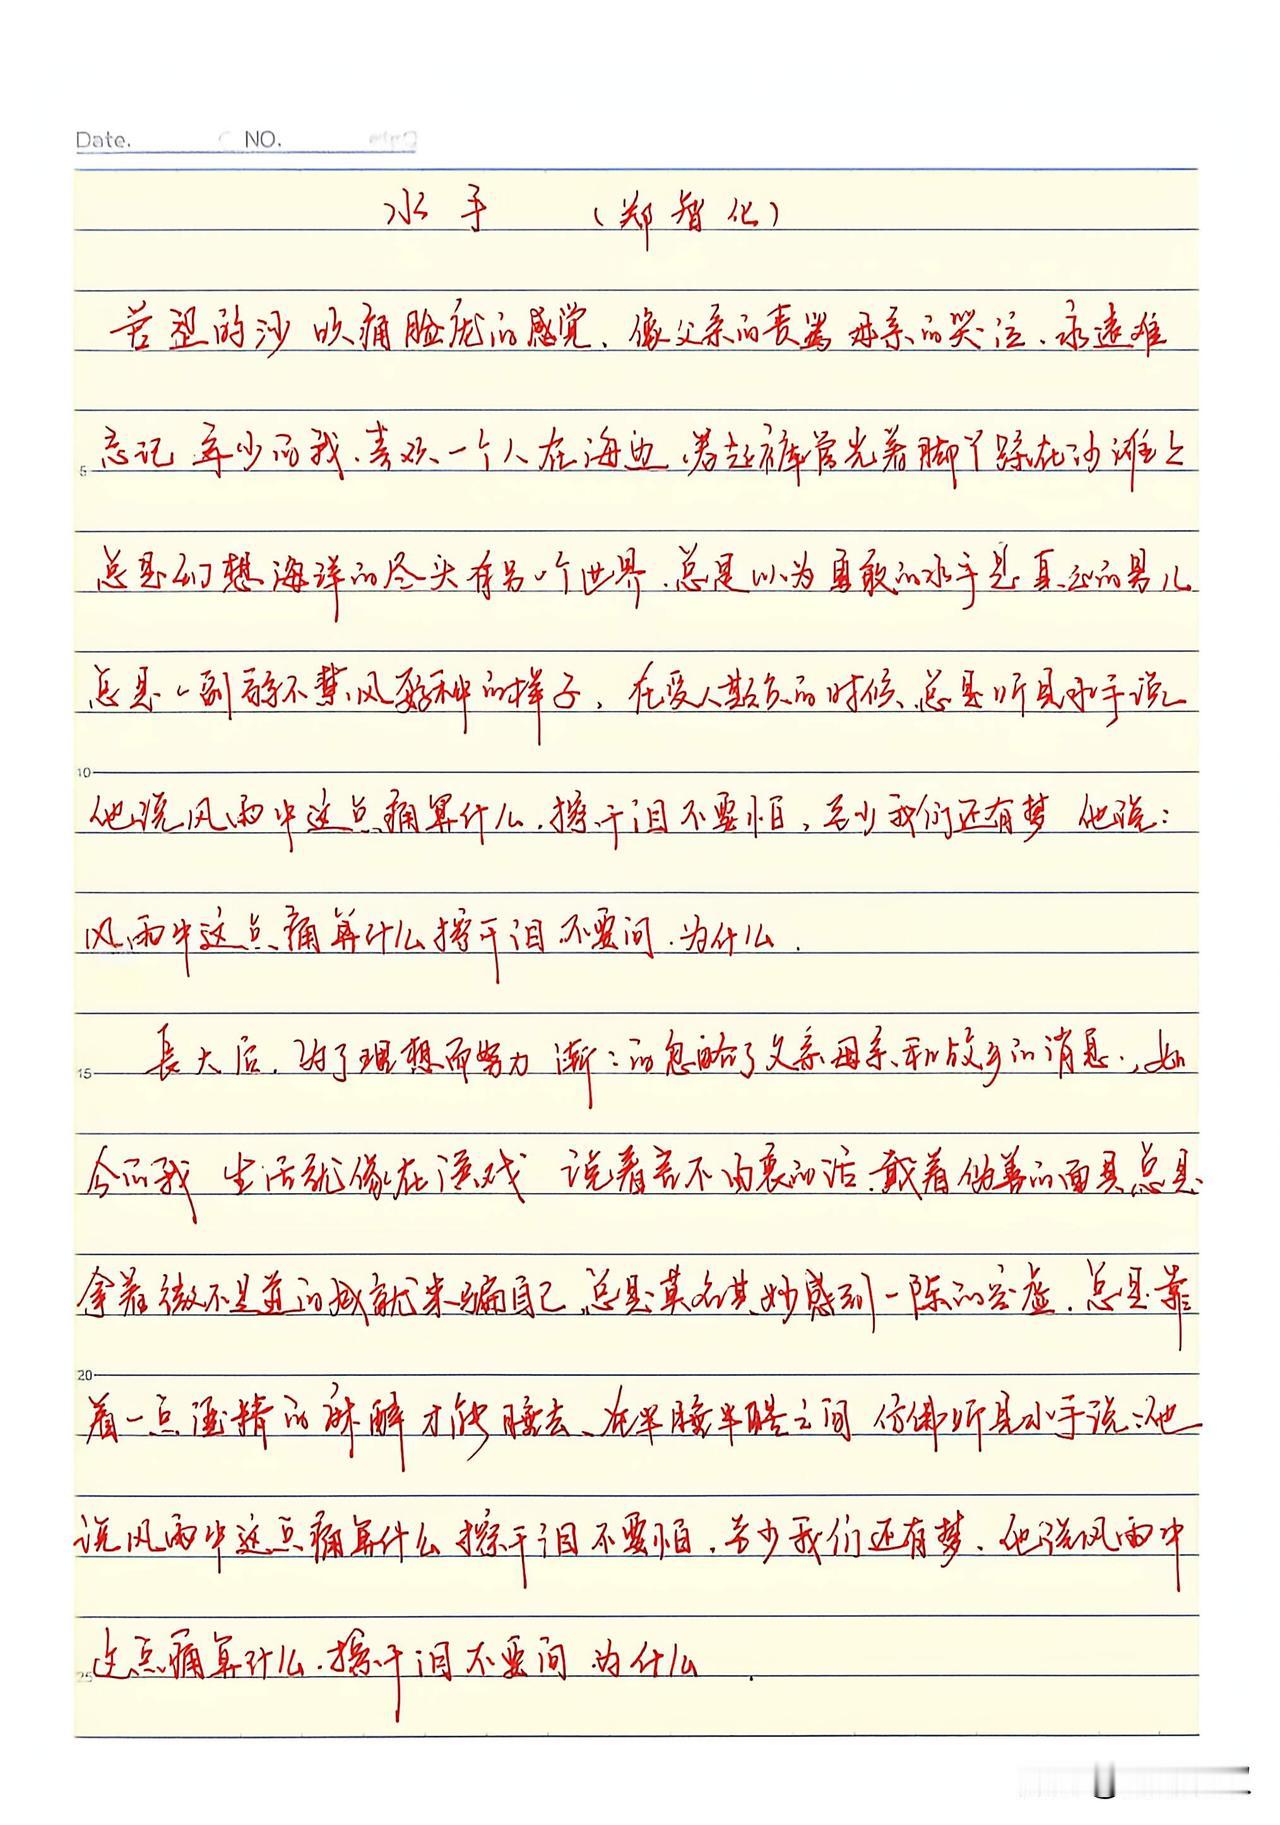 Date. NO.
水手 (郑智化)
苦涩的沙 吹痛脸庞的感觉、像父亲的责骂 母亲的哭泣、永远难
忘记 年少的我、喜欢一个人在海边、卷起裤管光着脚丫踩在沙滩上
总是幻想海洋的尽头有另一个世界、总是以为勇敢的水手是真正的男儿
总是一副弱不禁风孬种的样子、在受人欺负的时候、总是听见水手说
他说风雨中这点痛算什么、擦干泪不要怕,至少我们还有梦 他说:
风雨中这点痛算什么擦干泪 不要问、为什么.
長大后、为了理想而努力 渐:的忽略了父亲母亲和故乡的消息、如
今的我 生活就像在演戏 说着言不由衷的话、戴着伪善的面具总是
拿着微不足道的成就来骗自己、总是莫名其妙感到一阵的空虚、总是靠
着一点酒精的麻醉才能睡去、在半睡半醒之间 仿佛听见水手说:他
说风雨中这点痛算什么擦干泪不要怕、至少我们还有梦、他说风雨中
这点痛算什么、擦干泪不要问 为什么.
5
10
15
20
25